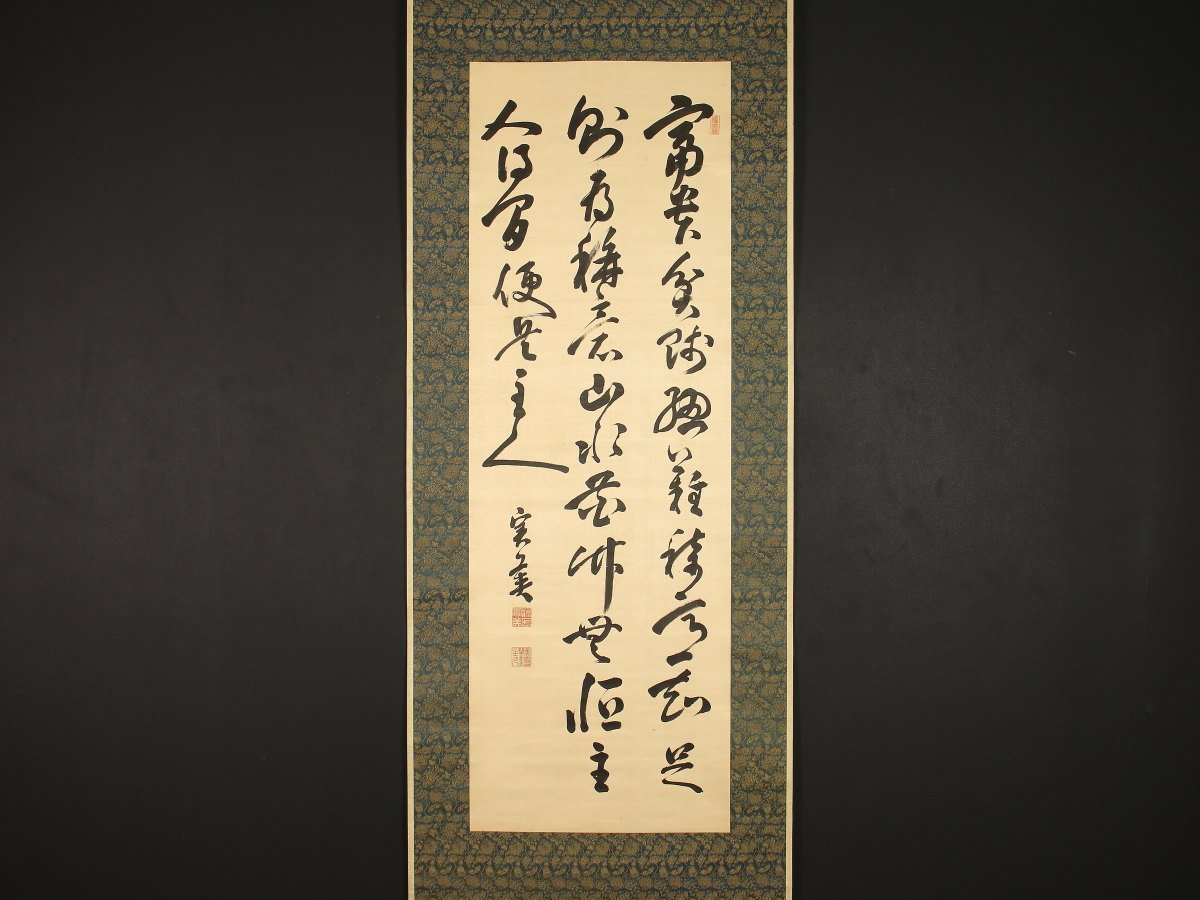 富貴貧賤總難稱意知足
即為稱意山水花竹無恒主
人得閒便是主人
実美